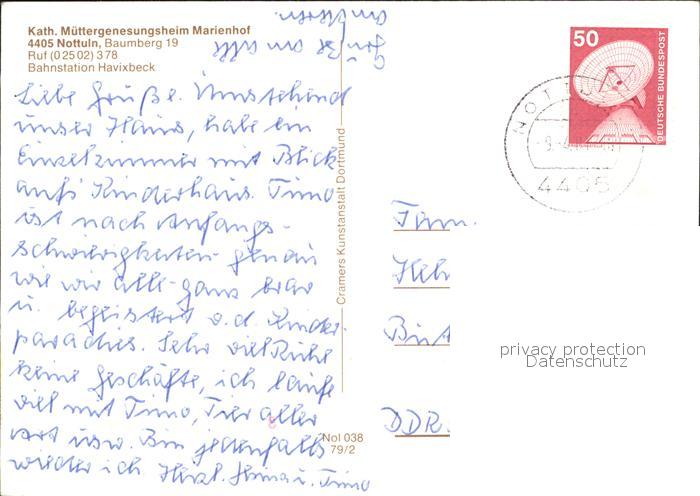 Kath. Müttergenesungsheim Marienhof
4405 Nottuln, Baumberg 19
Ruf (0 25 02) 3 78
Bahnstation Havixbeck
Liebe Grüße. Umstehend
unser Haus, habe ein
Einzelzimmer mit Blick
aufs Kinderhaus. Timo
ist nach Anfangs-
schwierigkeiten genau
wie wir alle ganz brav
u. begeistert v. d. Kinder-
paradies. Sehr viel Ruhe
keine Geschäfte, ich laufe
viel mit Timo, Tier aller
Art usw. Bin jedenfalls
wieder ich Herzl. u. Timo
Gruß an alle
am
Cramers Kunstanstalt Dortmund
Nol 038
79/2
50
DEUTSCHE BUNDESPOST
NOTTU
4405
Fam.
DDR.
privacy protection
Datenschutz